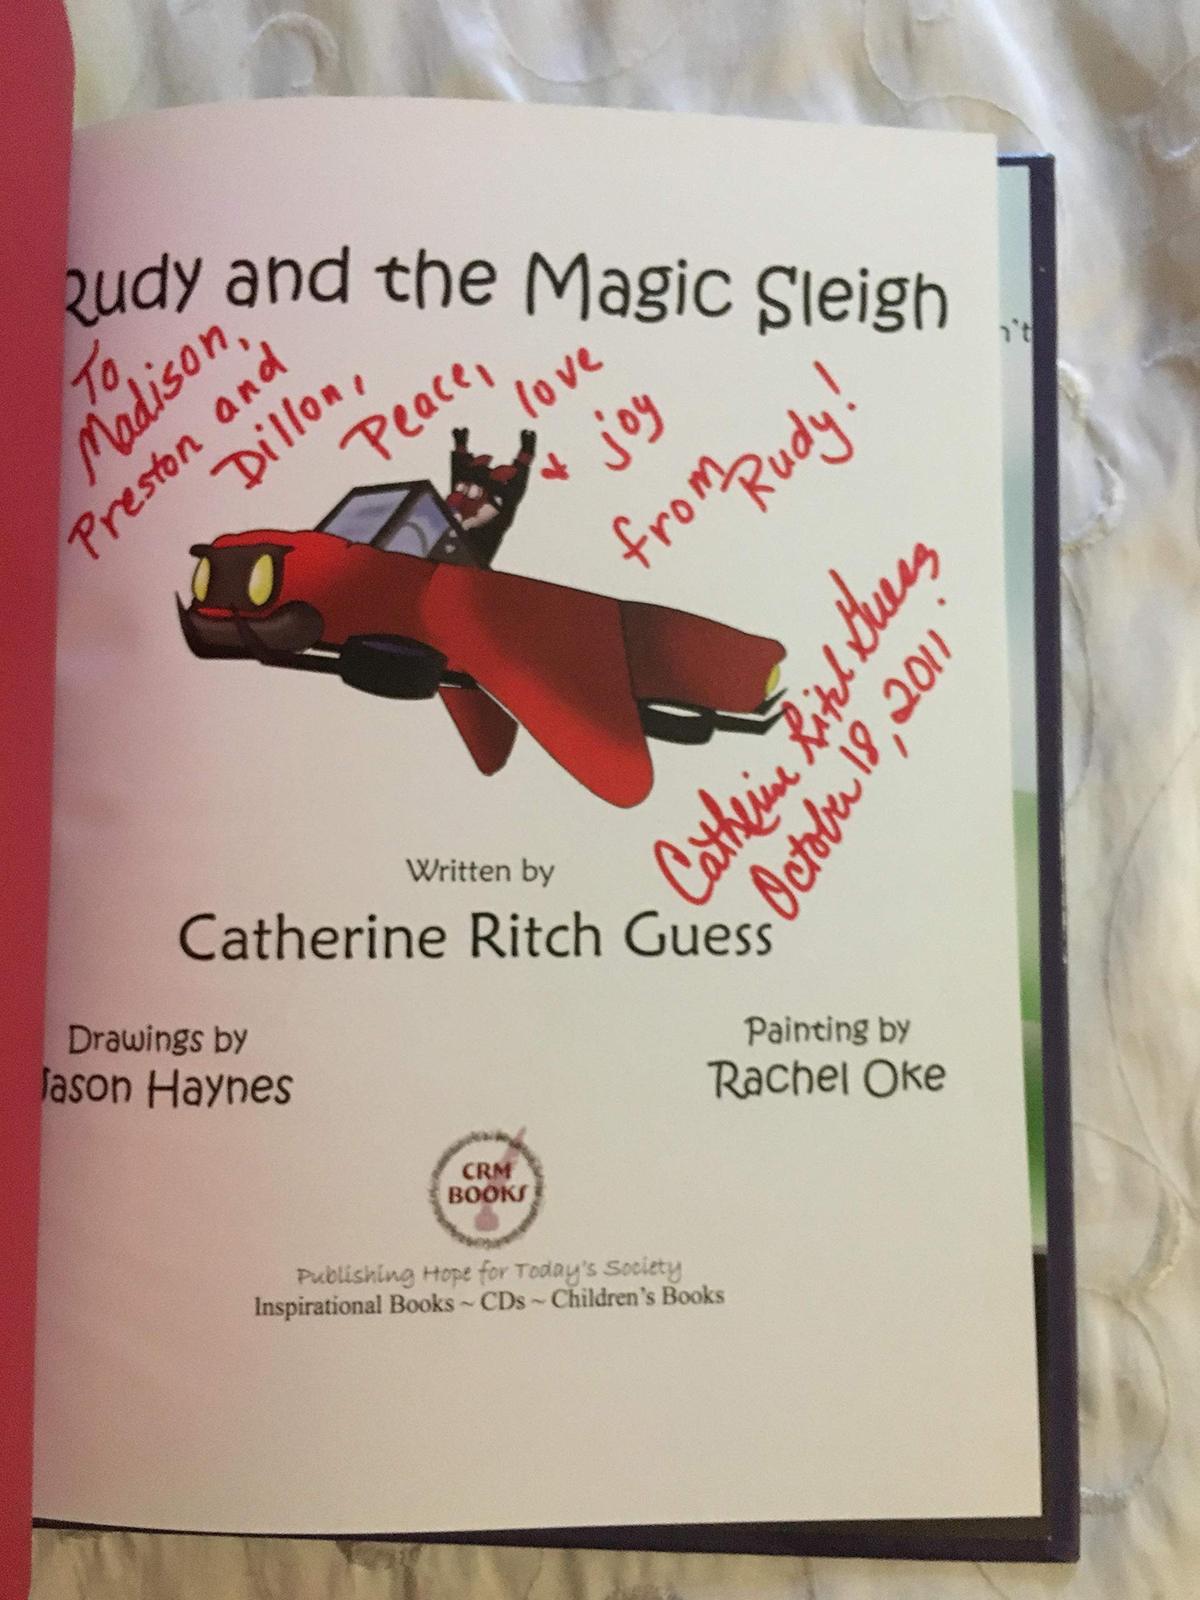 Rudy and the Magic Sleigh
To
Madison,
Preston and
Dillon,
Peace,
love
& joy
from
Rudy!
Catherine Ritch Guess
October 18, 2011
Written by
Catherine Ritch Guess
Drawings by
Jason Haynes
Painting by
Rachel Oke
CRM
BOOKS
Publishing Hope for Today's Society
Inspirational Books ~ CDs ~ Children's Books
n't